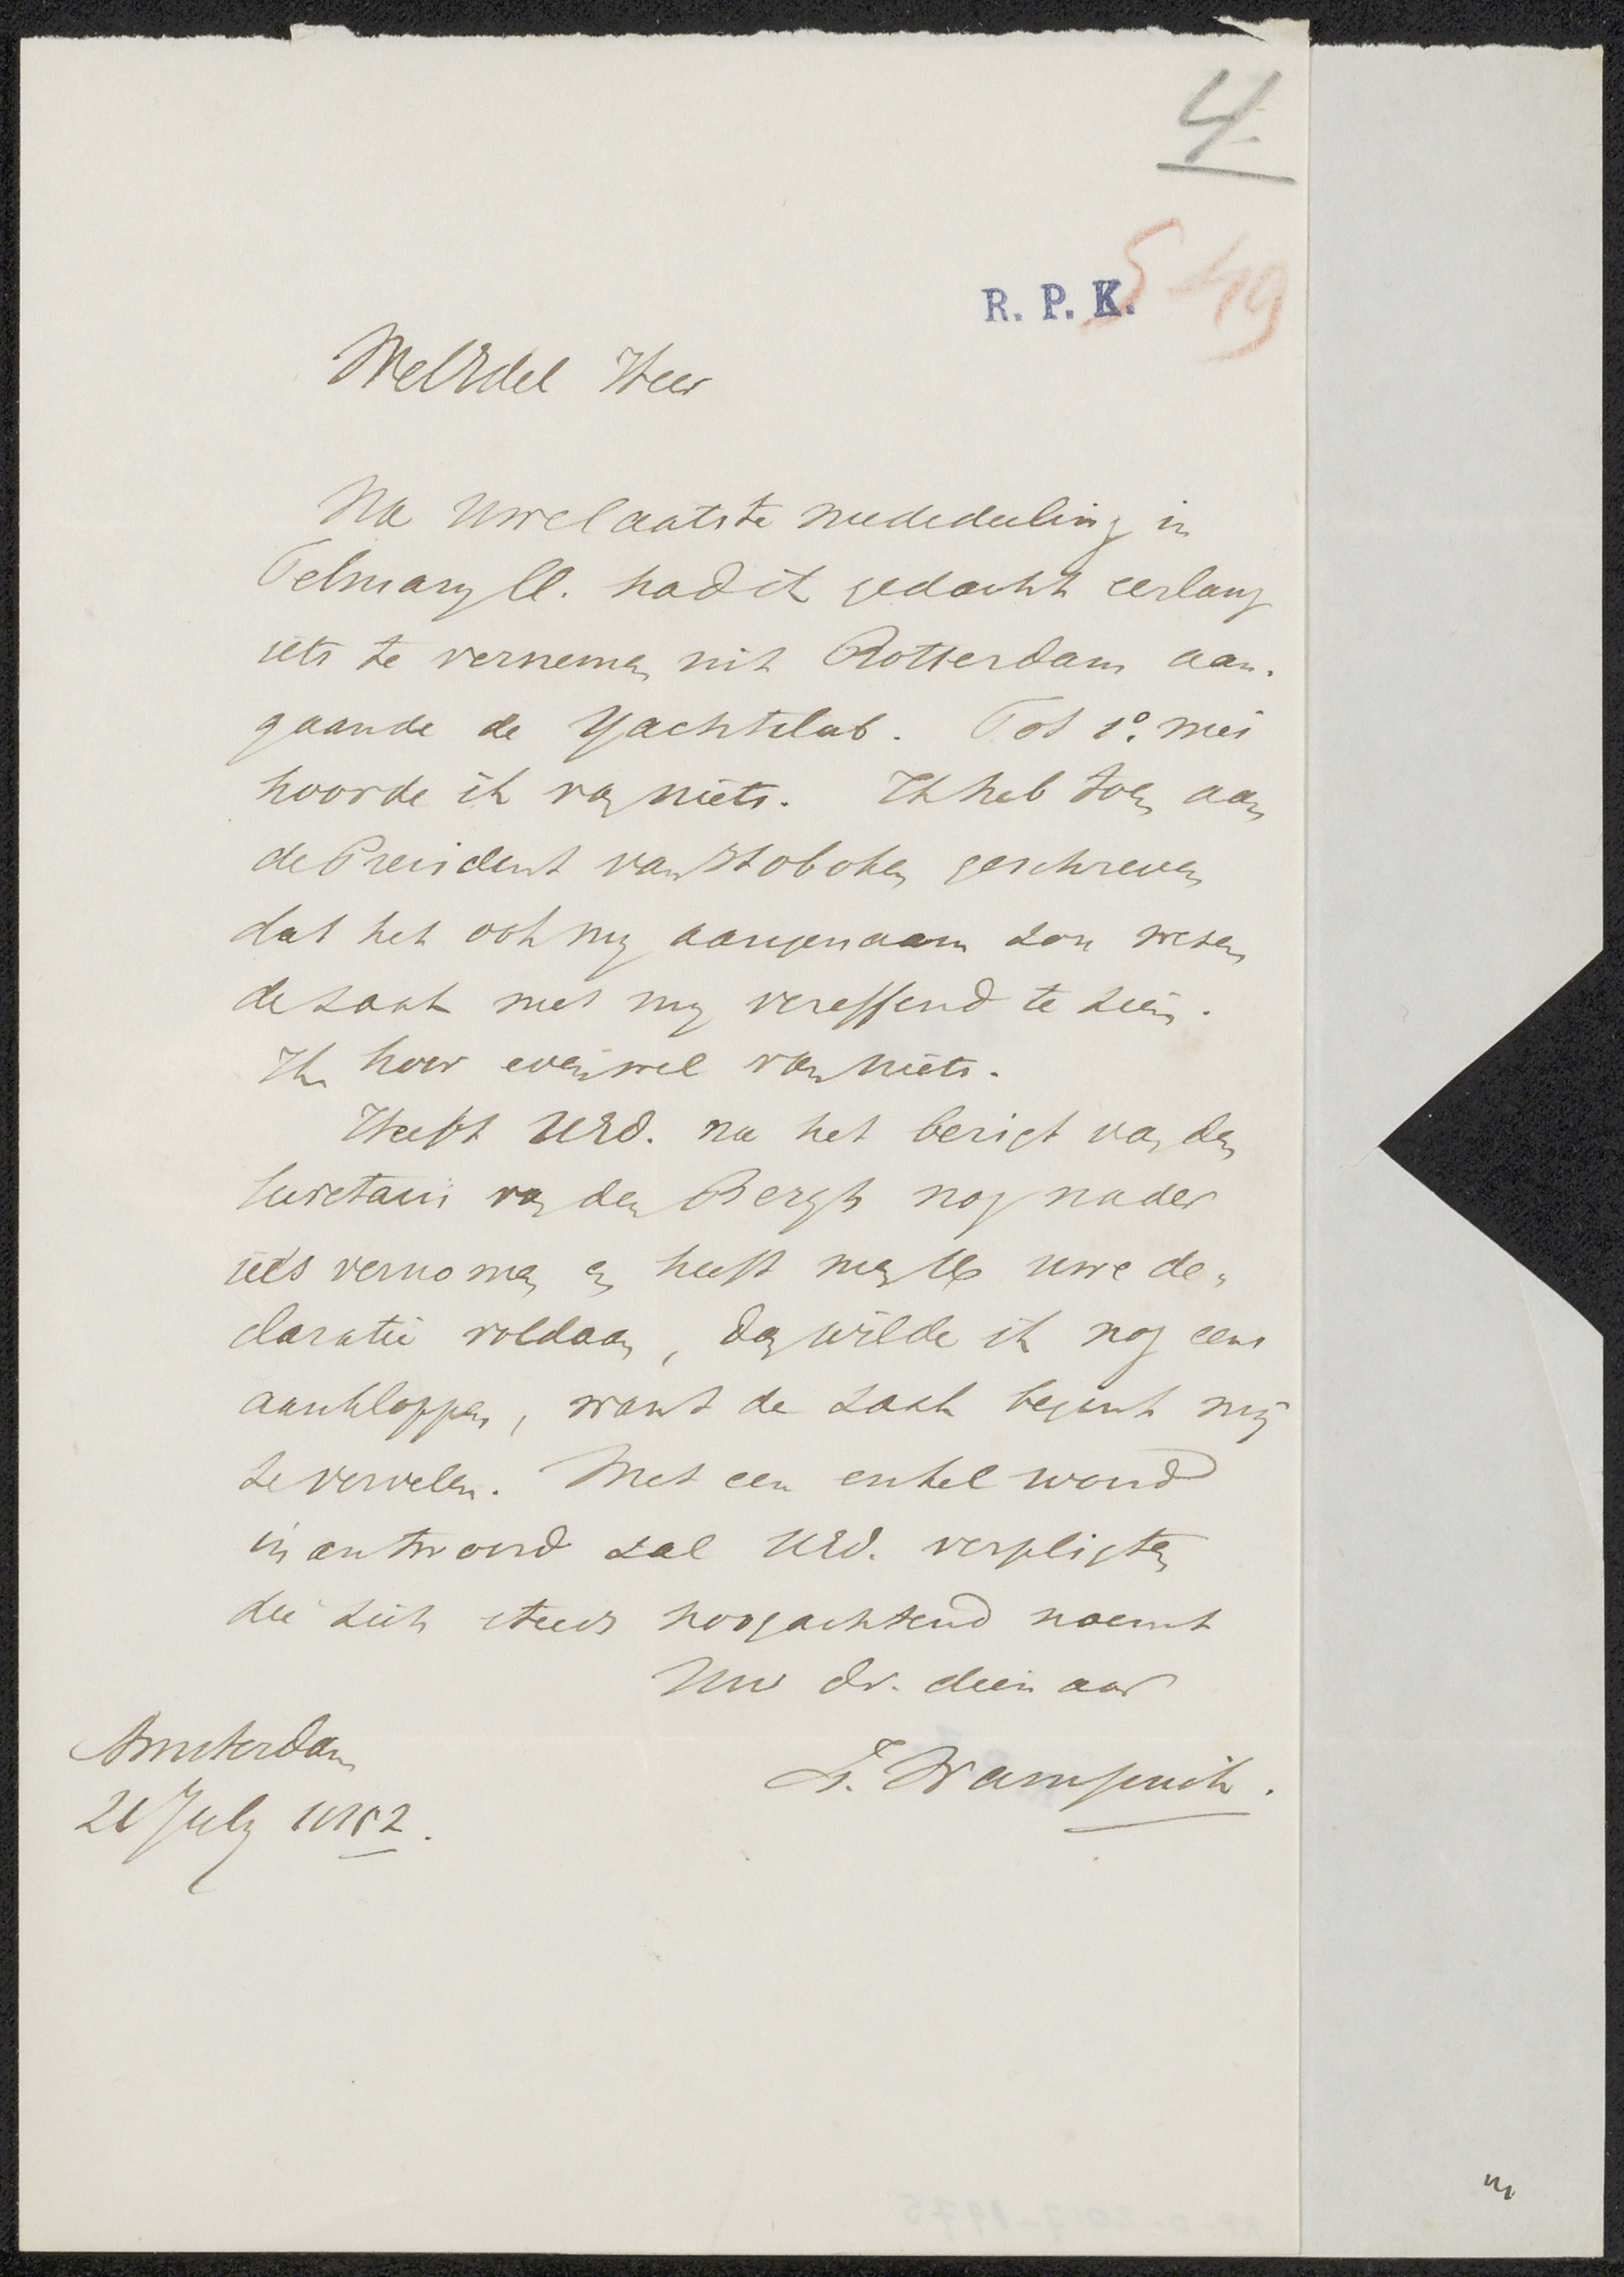 4
R. P. K.
S 49
WelEdel Heer
Na Uwe laatste mededeeling in
February ll. had ik gedacht eerlang
iets te vernemen uit Rotterdam aan-
gaande de Yachtclub. Tot 1o. Mei
hoorde ik van niets. Ik heb toen aan
de President van Hoboken geschreven
dat het ook my aangenaam zou wezen
de zaak met my vereffend te zien.
Ik hoor evenwel van niets.
Heeft UEd. na het berigt van den
van den Bergh nog nader
iets vernomen en heeft men Uwe de-
claratie voldaan, dan wilde ik nog eens
aankloppen, want de zaak begint mij
te vervelen. Met een enkel woord
in antwoord zal UEd. verpligten
die zich steeds hoogachtend noemt
Uw dr. dienaar
Amsterdam
21 July 1852.